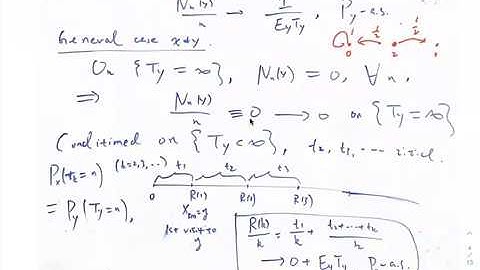 Nₙ(y)/n → 1/E_yT_y, P_y-a.s.
General case x≠y.
1/2 1/2
0 2 1
On {T_y = ∞}, Nₙ(y) = 0, ∀n.
⇒ Nₙ(y)/n ≡ 0 → 0 on {T_y = ∞}
Conditioned on {T_y < ∞}, t₂, t₃, ⋯ i.i.d.
Pₓ(t_k = n) (k=2,3,⋯) t₁ t₂ t₃
= P_y(T_y = n),
0 R(1) R(2) R(3)
= y
1st visit to y
R(k)/k = t₁/k + (t₂+⋯+t_k)/k
→ 0 + E_yT_y P-a.s.